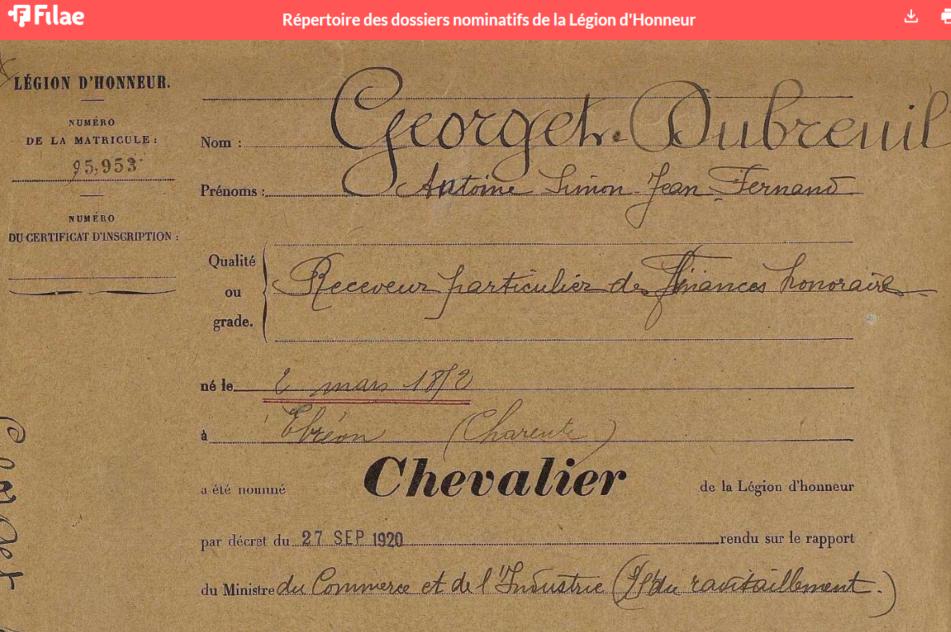 Filae
Répertoire des dossiers nominatifs de la Légion d'Honneur
LÉGION D'HONNEUR.
NUMÉRO
DE LA MATRICULE :
95,953
NUMÉRO
DU CERTIFICAT D'INSCRIPTION :
Nom : Georget-Dubreuil
Prénoms : Antoine Simon Jean Fernand
Qualité
ou
grade.
Receveur particulier des Finances honoraire
né le 2 mars
à Ebréon (Charente)
a été nommé Chevalier de la Légion d'honneur
par décret du 27 SEP 1920 rendu sur le rapport
du Ministre du Commerce et de l'Industrie ( du ravitaillement.)
Georget